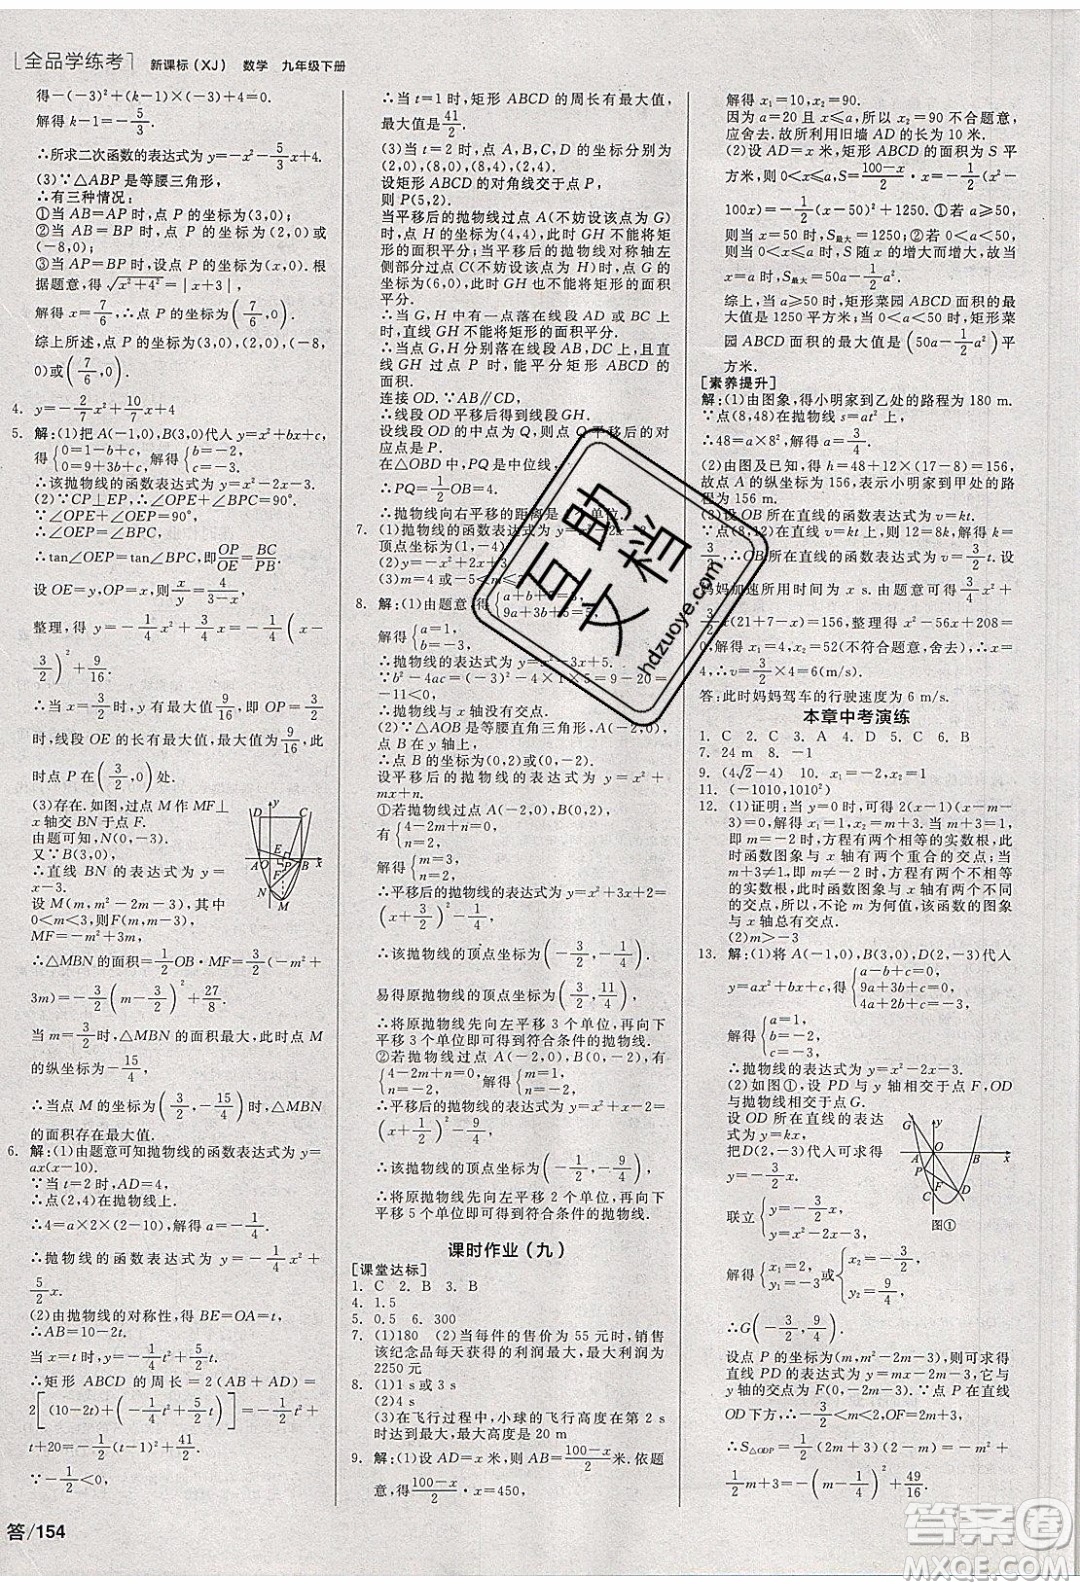 全品学练考 新课标(XJ) 数学 九年级下册
得-(-3)²+(k-1)×(-3)+4=0.
解得 k-1=-5/3.
∴所求二次函数的表达式为 y=-x²-5/3x+4.
(3)∵△ABP 是等腰三角形,
∴有三种情况:
①当 AB=AP 时,点 P 的坐标为(3,0);
②当 AB=BP 时,点 P 的坐标为(2,0)或
(-8,0);
③当 AP=BP 时,设点 P 的坐标为(x,0). 根
据题意,得√(x²+4²)=|x+3|.
解得 x=7/6,∴点 P 的坐标为(7/6,0).
综上所述,点 P 的坐标为(3,0)或(2,0)或(-8,
0)或(7/6,0).
4. y=-2/7x²+10/7x+4
5. 解:(1)把 A(-1,0),B(3,0)代入 y=x²+bx+c,
得{0=1-b+c, 0=9+3b+c, 解得{b=-2, c=-3.
∴该抛物线的函数表达式为 y=x²-2x-3.
(2)∵CP⊥EP,∴∠OPE+∠BPC=90°.
∵∠OPE+∠OEP=90°,
∴∠OEP=∠BPC,
∴tan∠OEP=tan∠BPC,即OP/OE=BC/PB.
设 OE=y,OP=x,则x/y=4/(3-x),
整理,得 y=-1/4x²+3/4x=-1/4(x-
3/2)²+9/16.
∴当 x=3/2时,y 有最大值,最大值为9/16,即 OP=
3/2时,线段 OE 的长有最大值,最大值为9/16,此
时点 P 在(3/2,0)处.
(3)存在. 如图,过点 M 作 MF⊥
x 轴交 BN 于点 F.
由题可知,N(0,-3).
又∵B(3,0),
∴直线 BN 的表达式为 y=x-3.
设 M(m,m²-2m-3),其中
0<m<3,则 F(m,m-3),∴
MF=-m²+3m,
∴△MBN 的面积=1/2OB·MF=3/2(-m²+
3m)=-3/2(m-3/2)²+27/8.
当 m=3/2时,△MBN 的面积最大,此时点 M
的纵坐标为-15/4.
∴当点 M 的坐标为(3/2,-15/4)时,△MBN
的面积存在最大值.
6. 解:(1)由题意可知抛物线的函数表达式为 y=
ax(x-10).
∵当 t=2 时,AD=4,
∴点(2,4)在抛物线上,
∴4=a×2×(2-10),解得 a=-1/4,
∴抛物线的函数表达式为 y=-1/4x²+
5/2x.
(2)由抛物线的对称性,得 BE=OA=t,
∴AB=10-2t.
当 x=t 时,AD=-1/4t²+5/2t,
∴矩形 ABCD 的周长=2(AB+AD)=
2[(10-2t)+(-1/4t²+5/2t)]=-1/2t²+
t+20=-1/2(t-1)²+41/2.
∵-1/2<0,
∴当 t=1 时,矩形 ABCD 的周长有最大值,
最大值是41/2.
(3)当 t=2 时,点 A,B,C,D 的坐标分别为
(2,0),(8,0),(8,4),(2,4).
设矩形 ABCD 的对角线交于点 P,
则 P(5,2).
当平移后的抛物线过点 A(不妨设为点 G)
时,点 H 的坐标为(4,4),此时 GH 不能将矩
形的面积平分;当平移后的抛物线对称轴左
侧部分过点 C(不妨设为点 H)时,点 G 的坐
标为(6,0),此时 GH 也不能将矩形的面积平
分.
∴当 G,H 中有一点在线段 AD 或 BC 上
时,直线 GH 不能将矩形的面积平分.
∴当 G,H 分别落在线段 AB,DC 上,且直线
GH 过点 P 时,能平分矩形 ABCD 的
面积.
连接 OD. ∵AB∥CD,
∴线段 OD 平移后得到线段 GH.
设线段 OD 的中点为 Q,则点 Q 平移后的对
应点是 P.
在△OBD 中,PQ 是中位线,
∴PQ=1/2OB=4.
7. (1)抛物线的函数表达式为
顶点坐标为(1,-4)
(3)m=4 或-5<m≤0
8. 解:(1)由题意,得
解得{a=1,
∴抛物线的表达式为
没有交点.
(2)∵△AOB 是等腰直角三角形,A(-2,0),
点 B 在 y 轴上,
∴点 B 的坐标为(0,2)或(0,-2).
设平移后的抛物线的表达式为 y=x²+
mx+n.
①若抛物线过点 A(-2,0),B(0,2),
有{4-2m+n=0, n=2.
解得{m=3, n=2.
∴平移后的抛物线的表达式为 y=x²+3x+2=
(x+3/2)²-1/4,
∴该抛物线的顶点坐标为(-3/2,-1/4).
易得原抛物线的顶点坐标为(3/2,11/4),
∴将原抛物线先向左平移 3 个单位,再向下平
移 3 个单位即可得到符合条件的抛物线.
②若抛物线过点 A(-2,0),B(0,-2),
有{4-2m+n=0, n=-2. 解得{m=1, n=-2.
∴平移后的抛物线的表达式为 y=x²+x-2=
(x+1/2)²-9/4.
∴该抛物线的顶点坐标为(-1/2,-9/4).
∴将原抛物线先向左平移 2 个单位,再向下
平移 5 个单位即可得到符合条件的抛物线.
课时作业(九)
[课堂达标]
1. C 2. B 3. B
4. 1.5
5. 0.5 6. 300
7. (1)180 (2)当每件的售价为 55 元时,销售
该纪念品每天获得的利润最大,最大利润为
2250 元
8. (1)1 s或3 s
(2)4 s
(3)在飞行过程中,小球的飞行高度在第 2 s
时达到最大,最大高度是 20 m
9. 解:(1)设 AD=x 米,则 AB=(100-x)/2米. 依题
意,得(100-x)/2·x=450,
解得 x₁=10,x₂=90.
因为 a=20 且 x≤a,所以 x₂=90 不合题意,
应舍去. 故所利用旧墙 AD 的长为 10 米.
(2)设 AD=x 米,矩形 ABCD 的面积为 S 平
方米,则 0<x≤a,S=(100-x)/2·x=-1/2(x²-
100x)=-1/2(x-50)²+1250. ①若 a≥50,
则当 x=50 时,S最大=1250;②若 0<a<50,
则当 0<x≤a 时,S 随 x 的增大而增大,故当
x=a 时,S最大=50a-1/2a².
综上,当 a≥50 时,矩形菜园 ABCD 的最大面
积为 1250 平方米;当 0<a<50 时,矩形菜园
ABCD 的最大面积为(50a-1/2a²)平
方米.
[素养提升]
解:(1)由图象,得小明家到乙处的路程为 180 m.
∵点(8,48)在抛物线 s=at²上,
∴48=a×8²,∴a=3/4.
(2)由图及已知,得 h=48+12×(17-8)=156,
故点 A 的纵坐标为 156,表示小明家到甲处的路
程为 156 m.
(3)设 OB 所在直线的函数表达式为 v=kt.
妈妈加速所用时间为 x s. 由题意,得
整理,得 x²-56x+208=
0,解得 x₁=4,x₂=52(不符合题意,舍去). ∴x=
4,∴v=3/2×4=6(m/s).
答:此时妈妈驾车的行驶速度为 6 m/s.
本章中考演练
1. C 2. C 3. A 4. D 5. C 6. B
7. 24 m 8. -1
9. (4√2-4) 10. x₁=-2,x₂=1
11. (-1010,1010²)
12. (1)证明:当 y=0 时,2(x-1)(x-m-
3)=0,解得 x₁=1,x₂=m+3. 当 m+3=1,
即 m=-2 时,方程有两个相等的实数根,此
时函数图象与 x 轴有两个重合的交点;当
m+3≠1,即 m≠-2 时,方程有两个不相等
的实数根,所以,不论 m 为何值,该函数的图象
与 x 轴总有交点.
(2)m>-3
13. 解:(1)将 A(-1,0),B(3,0),D(2,-3)代入
y=ax²+bx+c,得{a-b+c=0, 9a+3b+c=0, 4a+2b+c=-3,
解得{a=1, b=-2, c=-3.
∴抛物线的表达式为 y=x²-2x-3.
(2)如图①,设 PD 与 y 轴相交于点 F,OD
与抛物线相交于点G.
设 OD 所在直线的表达式
为 y=kx,
把D(2,-3)代入,可求得
y=-3/2x.
联立{y=-3/2x, y=x²-2x-3,
图①
解得{x₁=2, y₁=-3, {x₂=-3/2, y₂=9/4,
∴G(-3/2,9/4).
设点 P 的坐标为(m,m²-2m-3),可求得
直线 PD 的表达式为 y=mx-2m-3,它与
y 轴的交点坐标为 F(0,-2m-3). P 在直线
OD 下方,∴-3/2<m<2,OF=2m+3,
∴S△ODP=1/2(2m+3)(2-m)=-m²+
1/2m+3=-(m-1/4)²+49/16.
答/154
互助文档
hdzuoye.com
答案圈
MXQE.COM